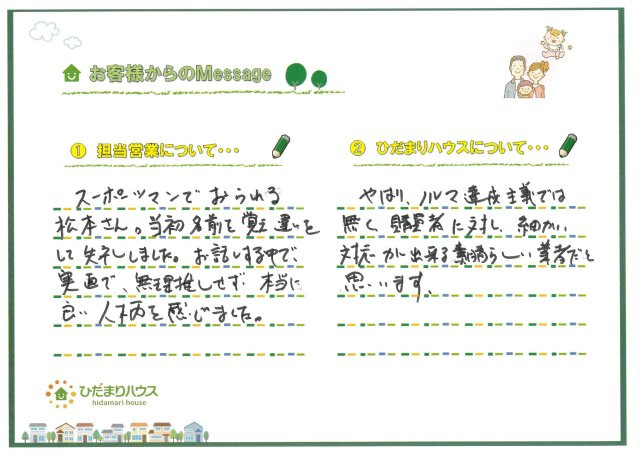 お客様からのMessage
① 担当営業について・・・
スーポツマンでおられる
松本さん。当初名前を覚え違いを
して失礼しました。お話しする中で、
実直で、無理推しせず 本当に
良い人柄を感じました。
② ひだまりハウスについて・・・
やはり、ノルマ達成主義では
無く 顧客者に対し、細かい
対応が出来る素晴らしい業者だと
思います。
ひだまりハウス
hidamari house